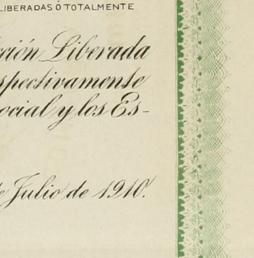 LIBERADAS Ó TOTALMENTE
ción Liberada
spectivamente
ocial y los Es-
e Julio de 1910.